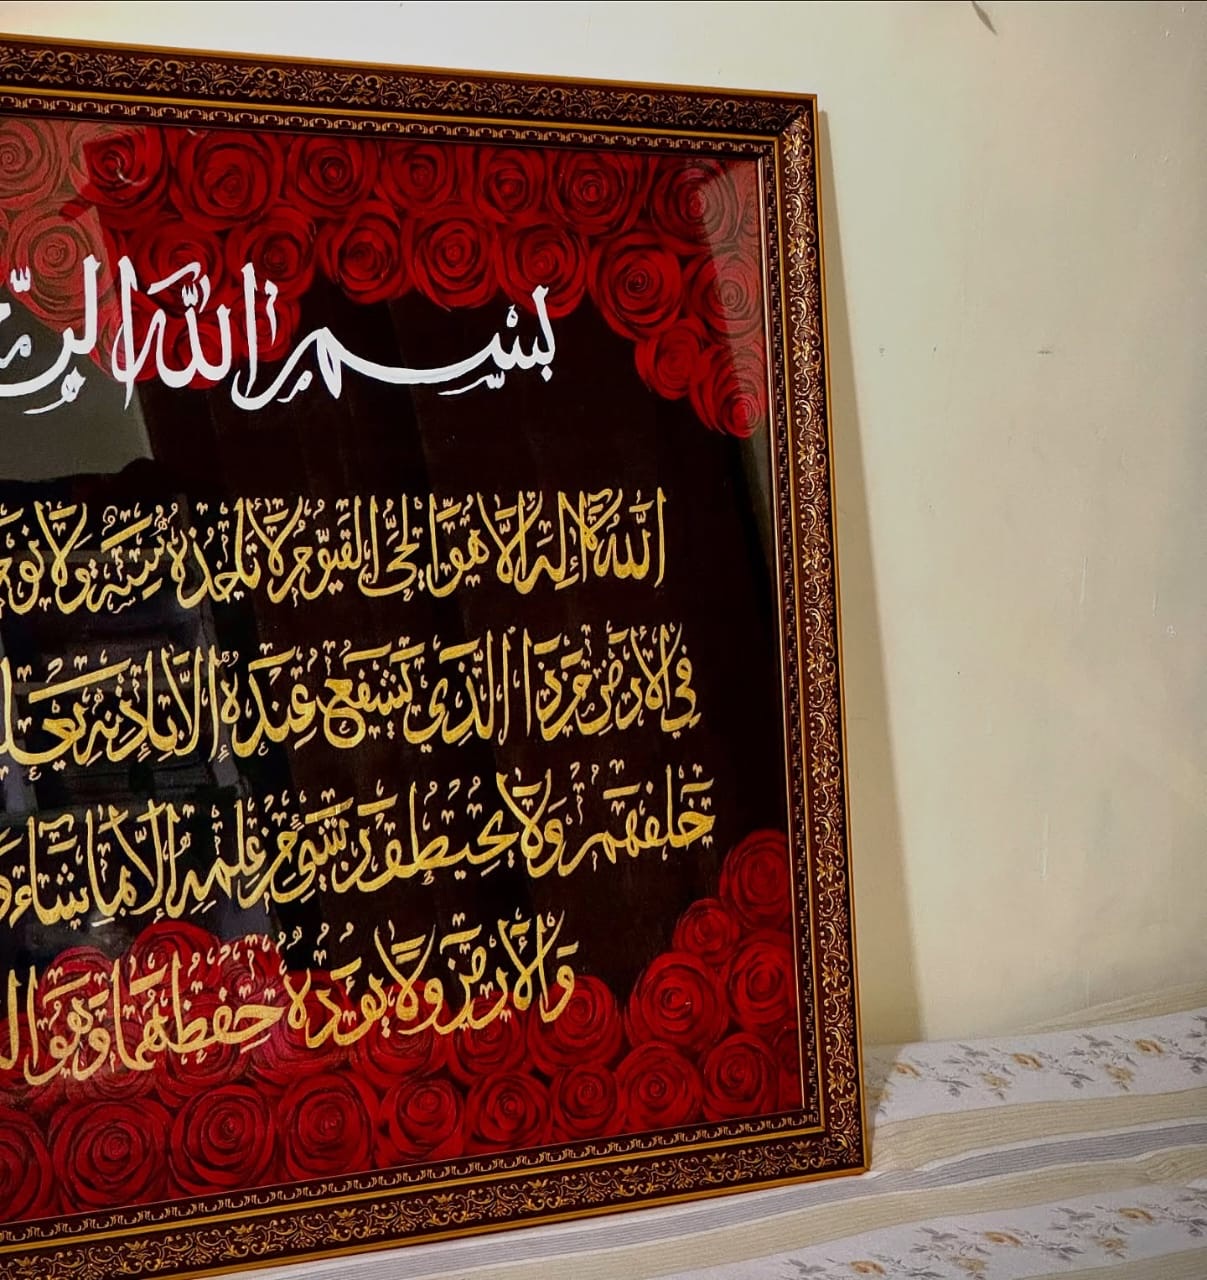 بِسْمِ اللهِ
اللهُ لَا إِلَهَ إِلَّا هُوَ الْحَيُّ الْقَيُّومُ لَا تَأْخُذُهُ سِنَةٌ وَلَا نَوْ
فِي الْأَرْضِ مَنْ ذَا الَّذِي يَشْفَعُ عِنْدَهُ إِلَّا بِإِذْنِهِ يَعْلَ
خَلْفَهُمْ وَلَا يُحِيطُونَ بِشَيْءٍ مِنْ عِلْمِهِ إِلَّا بِمَا شَاءَ
وَالْأَرْضَ وَلَا يَئُودُهُ حِفْظُهُمَا وَهُوَ